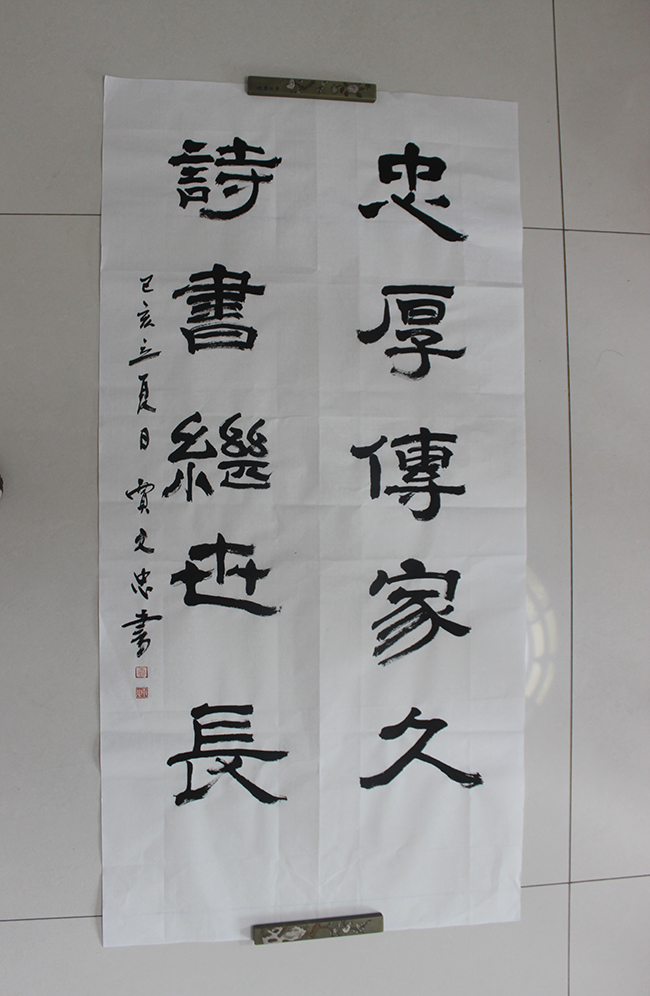 忠厚傳家久
詩書繼世長
己亥立夏日 賈文忠書